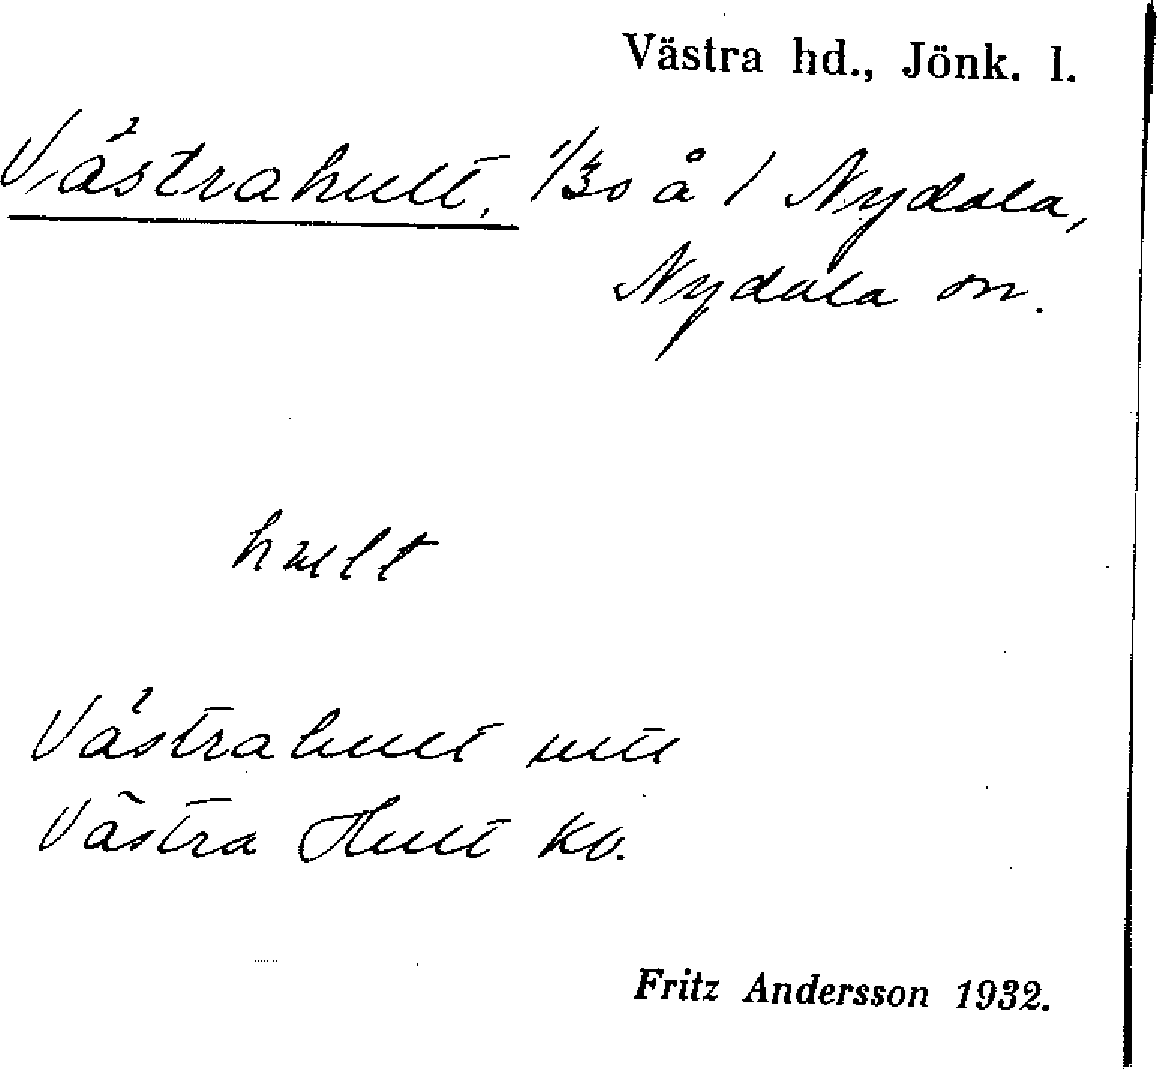 Västra hd., Jönk. l.
Västrahult, 1/30 å 1 Nydala,
Nydala sn.
hult
Västrahult
Västra Hult Kv.
Fritz Andersson 1932.